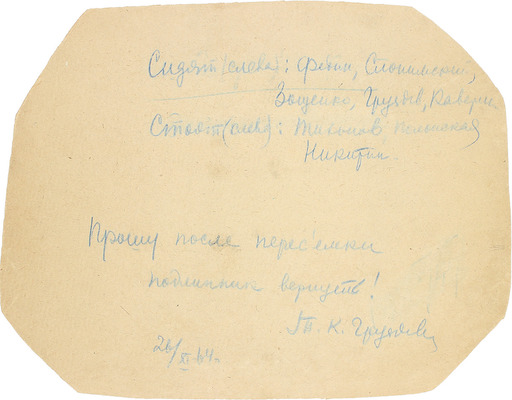 Сидят (слева): Федин, Слонимский,
Зощенко, Груздев, Каверин
Стоят (слева): Тихонов, Полонская
Никитин.
Прошу после пересъемки
подлинник вернуть!
Т. К. Груздева
26/XI 64 г.